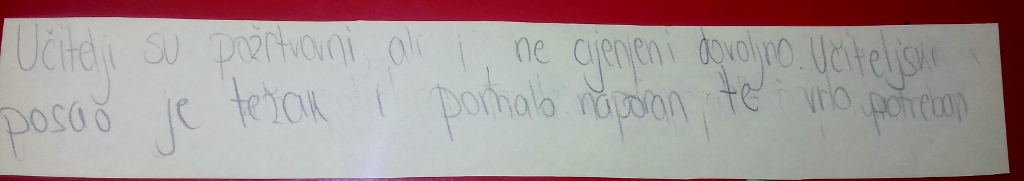 Učitelji su požrtvovni, ali i ne cijenjeni dovoljno. Učiteljski
posao je težak i pomalo naporan, te i vrlo potreban